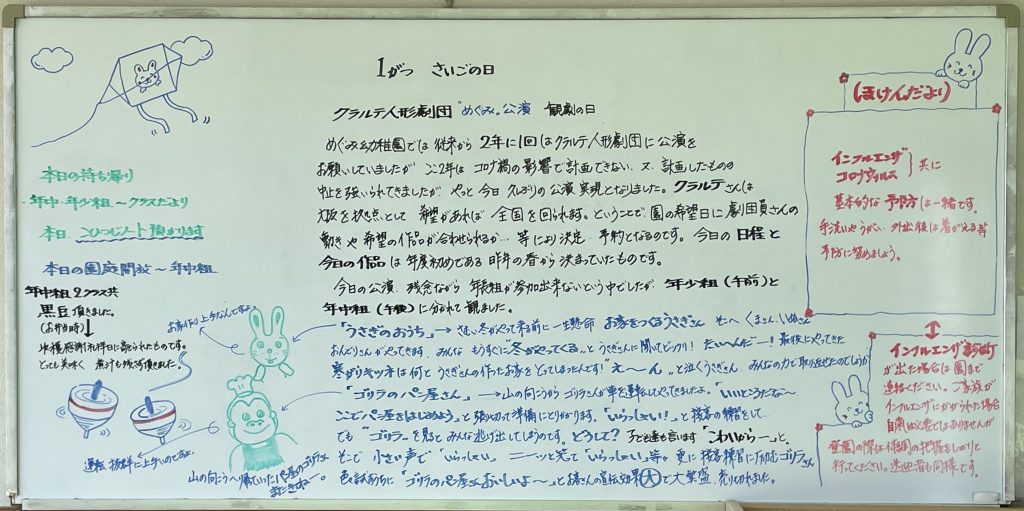 1がつ さいごの日
クラルテ人形劇団 "めぐみ"公演 観劇の日
めぐみ幼稚園では 従来から 2年に1回はクラルテ人形劇団に公演を
お願いしていましたが ここ2年は コロナ禍の影響で計画できない 又、計画したものの
中止を強いられてきましたが やっと今日 久しぶりの公演実現となりました。クラルテさんは
大阪を拠点として 希望があれば 全国を回られます。ということで 園の希望日に劇団員さんの
動きや希望の作品が合わせられるか… 等により決定・予約となるのです。今日の日程と
今日の作品は 年度初めである 昨年の春から決まっていたものです。
今日の公演、残念ながら 年長組が参加出来ないという中でしたが 年少組(午前)と
年中組(午後)に分かれて観ました。
「うさぎのおうち」→ さむい冬がやって来る前に一生懸命 お家をつくるうさぎさん そこへ くまさん、いぬさん
おんどりさんがやってきます。みんな もうすぐに"冬がやってくる"とうさぎさんに聞いてビックリ! たいへんだー! 最後にやってきた
寒がりキツネは何と うさぎさんの作ったお家をとってしまったんです! "え〜ん"と泣くうさぎさん みんなの力で取り返せたのでしょうか
「ゴリラのパン屋さん」→ 山の向こうから ゴリラさんが車を運転してやってきましたよ。「いいところだな〜
ここでパン屋をはじめよう」と張り切って準備にとりかかります。「いらっしゃい!」と挨拶の練習をして…
でも "ゴリラ"を見ると みんな逃げ出してしまうのです。どうして? 子ども達も言います「こわいから―」と。
そこで 小さい声で「いらっしゃい」 ニーッと笑って「いらっしゃい」等々 更に挨拶練習に励むゴリラさん
「ゴリラのパン屋さんおいしいよ〜」とお客さんの宣伝効果大で大繁盛、売り切れました。
本日の持ち帰り
年中・年少組〜クラスだより
本日 こひつじノート頂かります
本日の園庭開放〜年中組
年中組2クラス共
黒豆頂きました。
(お弁当時)
収穫感謝礼拝日に献げられたものです。
とっても美味しく 煮汁も残さず頂きました。
お家作り上手なんですよ
運転、抜群に上手いのですよ。
山の向こうへ帰っていったパン屋のゴリラさん
またきてねー。
ほけんだより
インフルエンザ
コロナウィルス
共に
基本的な 予防は一緒です。
手洗いやうがい、外出後は着がえる等
予防に努めましょう。
インフルエンザ 診断
が出た場合は園まで
連絡ください。ご家族が
インフルエンザにかかられた場合
自粛は必要ではありませんが
登園の際は体調の把握をしっかりと
行ってください。送迎者も同様です。